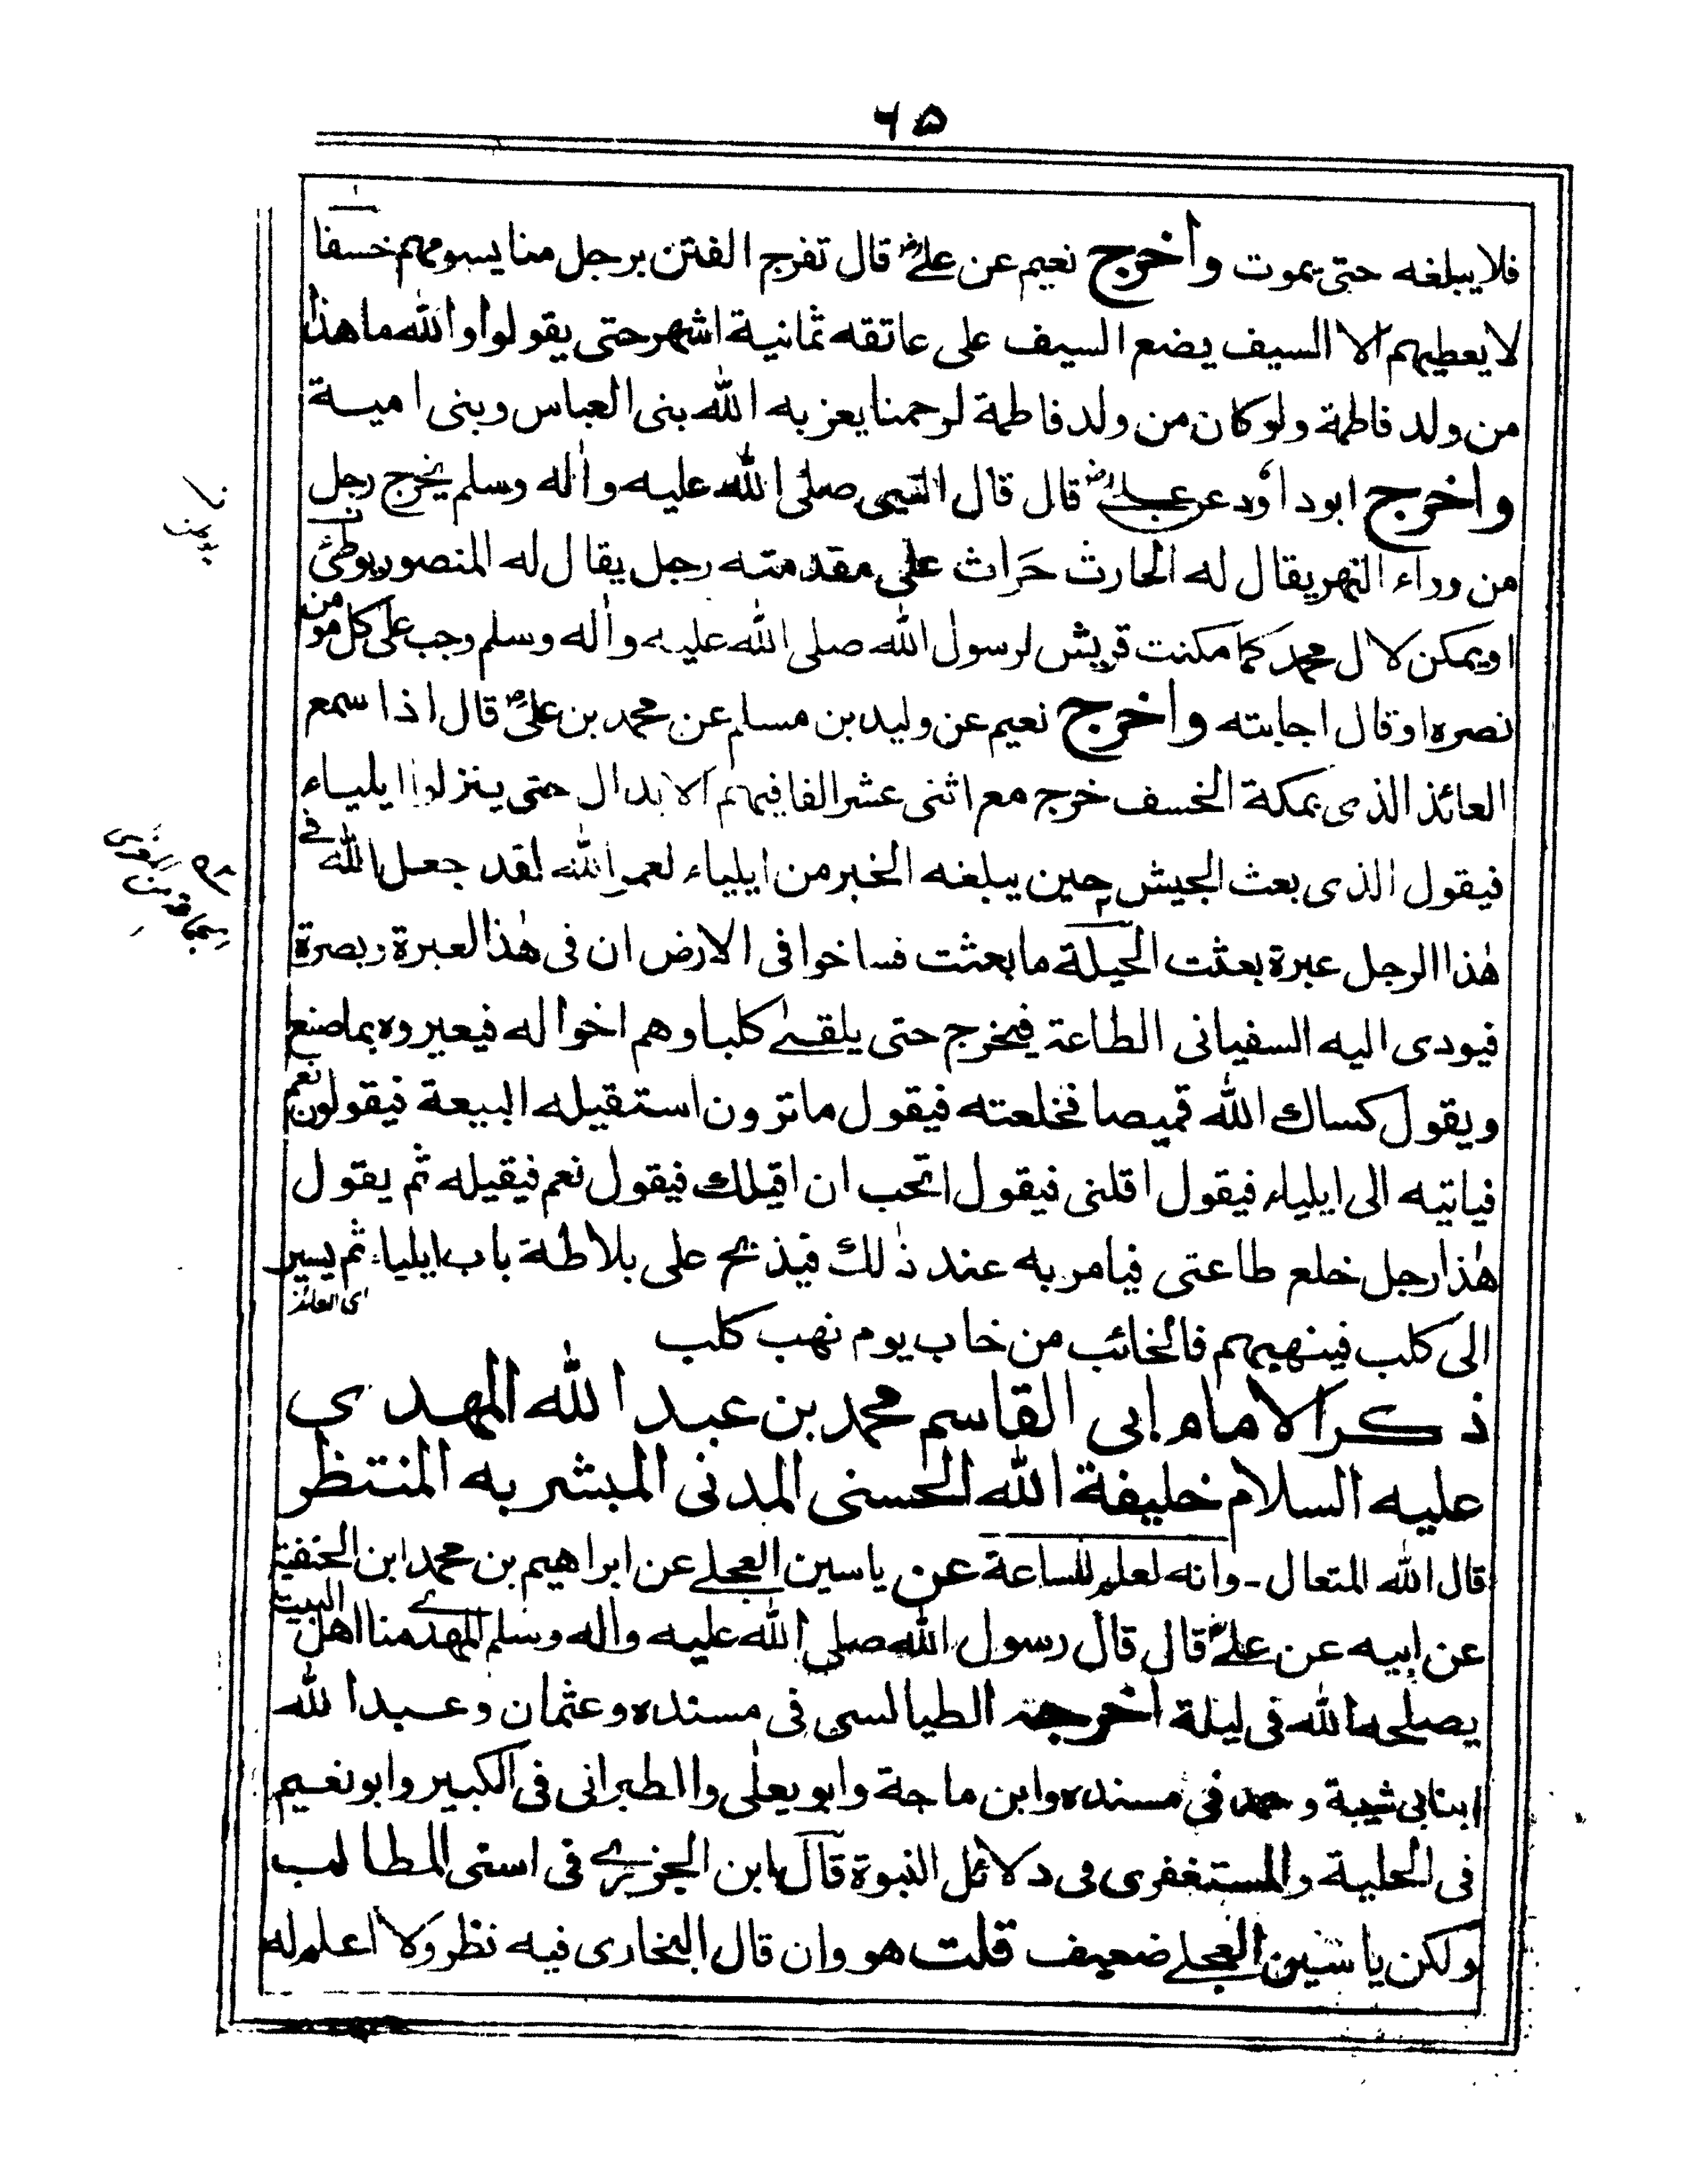 ۶۵
فلا يبلغه حتى يموت واخرج نعيم عن علیؓ قال تفرج الفتن برجل منا يسومهم خسفا
لا يعطيهم الا السيف يضع السيف على عاتقه ثمانية اشهر حتى يقولوا والله ما هذا
من ولد فاطمة ولو كان من ولد فاطمة لرحمنا يعز به الله بنى العباس وبنى امية
واخرج ابو داؤد عن علیؓ قال قال النبى صلى الله عليه واٰله وسلم يخرج رجل
من وراء النهر يقال له الحارث حَراث على مقدمته رجل يقال له المنصور يوطئ
او يمكن لاٰل محمد كما مكنت قريش لرسول الله صلى الله عليه واٰله وسلم وجب على كل مومن
نصره او قال اجابته واخرج نعيم عن وليد بن مسلم عن محمد بن علیؓ قال اذا سمع
العائذ الذى بمكة الخسف خرج مع اثنى عشر الفا فيهم الابدال حتى ينزلوا ايلياء
فيقول الذى بعث الجيش حين يبلغه الخبر من ايلياء لعمر الله لقد جعل الله فى
هٰذا الرجل عبرة بعثت الحيلة ما بعثت فساخوا فى الارض ان فى هٰذا لعبرة وبصرة
فيودى اليه السفيانى الطاعة فيخرج حتى يلقىٰ كلبا وهم اخواله فيعيروه بما صنع
ويقول كساك الله قميصا فخلعته فيقول ما ترون استقيله البيعة فيقولون نعم
فياتيه الى ايلياء فيقول اقلنى فيقول اتحب ان اقيلك فيقول نعم فيقيله ثم يقول
هٰذا رجل خلع طاعتى فيامر به عند ذٰلك فيذبح على بلاطة باب ايلياء ثم يسير
اى العائذ
الى كلب فينهبهم فالخائب من خاب يوم نهب كلب
ذكر الامام ابى القاسم محمد بن عبد الله المهدى
عليه السلام خليفة الله الحسنى المدنى المبشر به المنتظر
قال الله المتعال ۔ وانه لعلم للساعة عن ياسين العجلى عن ابراهيم بن محمد ابن الحنفية
عن ابيه عن علیؓ قال قال رسول الله صلى الله عليه واٰله وسلم المهدى منا اهل البيت
يصلحه الله فى ليلة اخرجه الطيالسى فى مسنده وعثمان وعبد الله
ابنا ابى شيبة و حمد فى مسنده وابن ماجة وابو يعلٰى والطبرانى فى الكبير وابو نعيم
فى الحلية والمستغفرى فى دلائل النبوة قال ابن الجزرى فى اسنى المطالب
ولكن ياسين العجلى ضعيف قلت هو وان قال البخارى فيه نظر ولا اعلم له